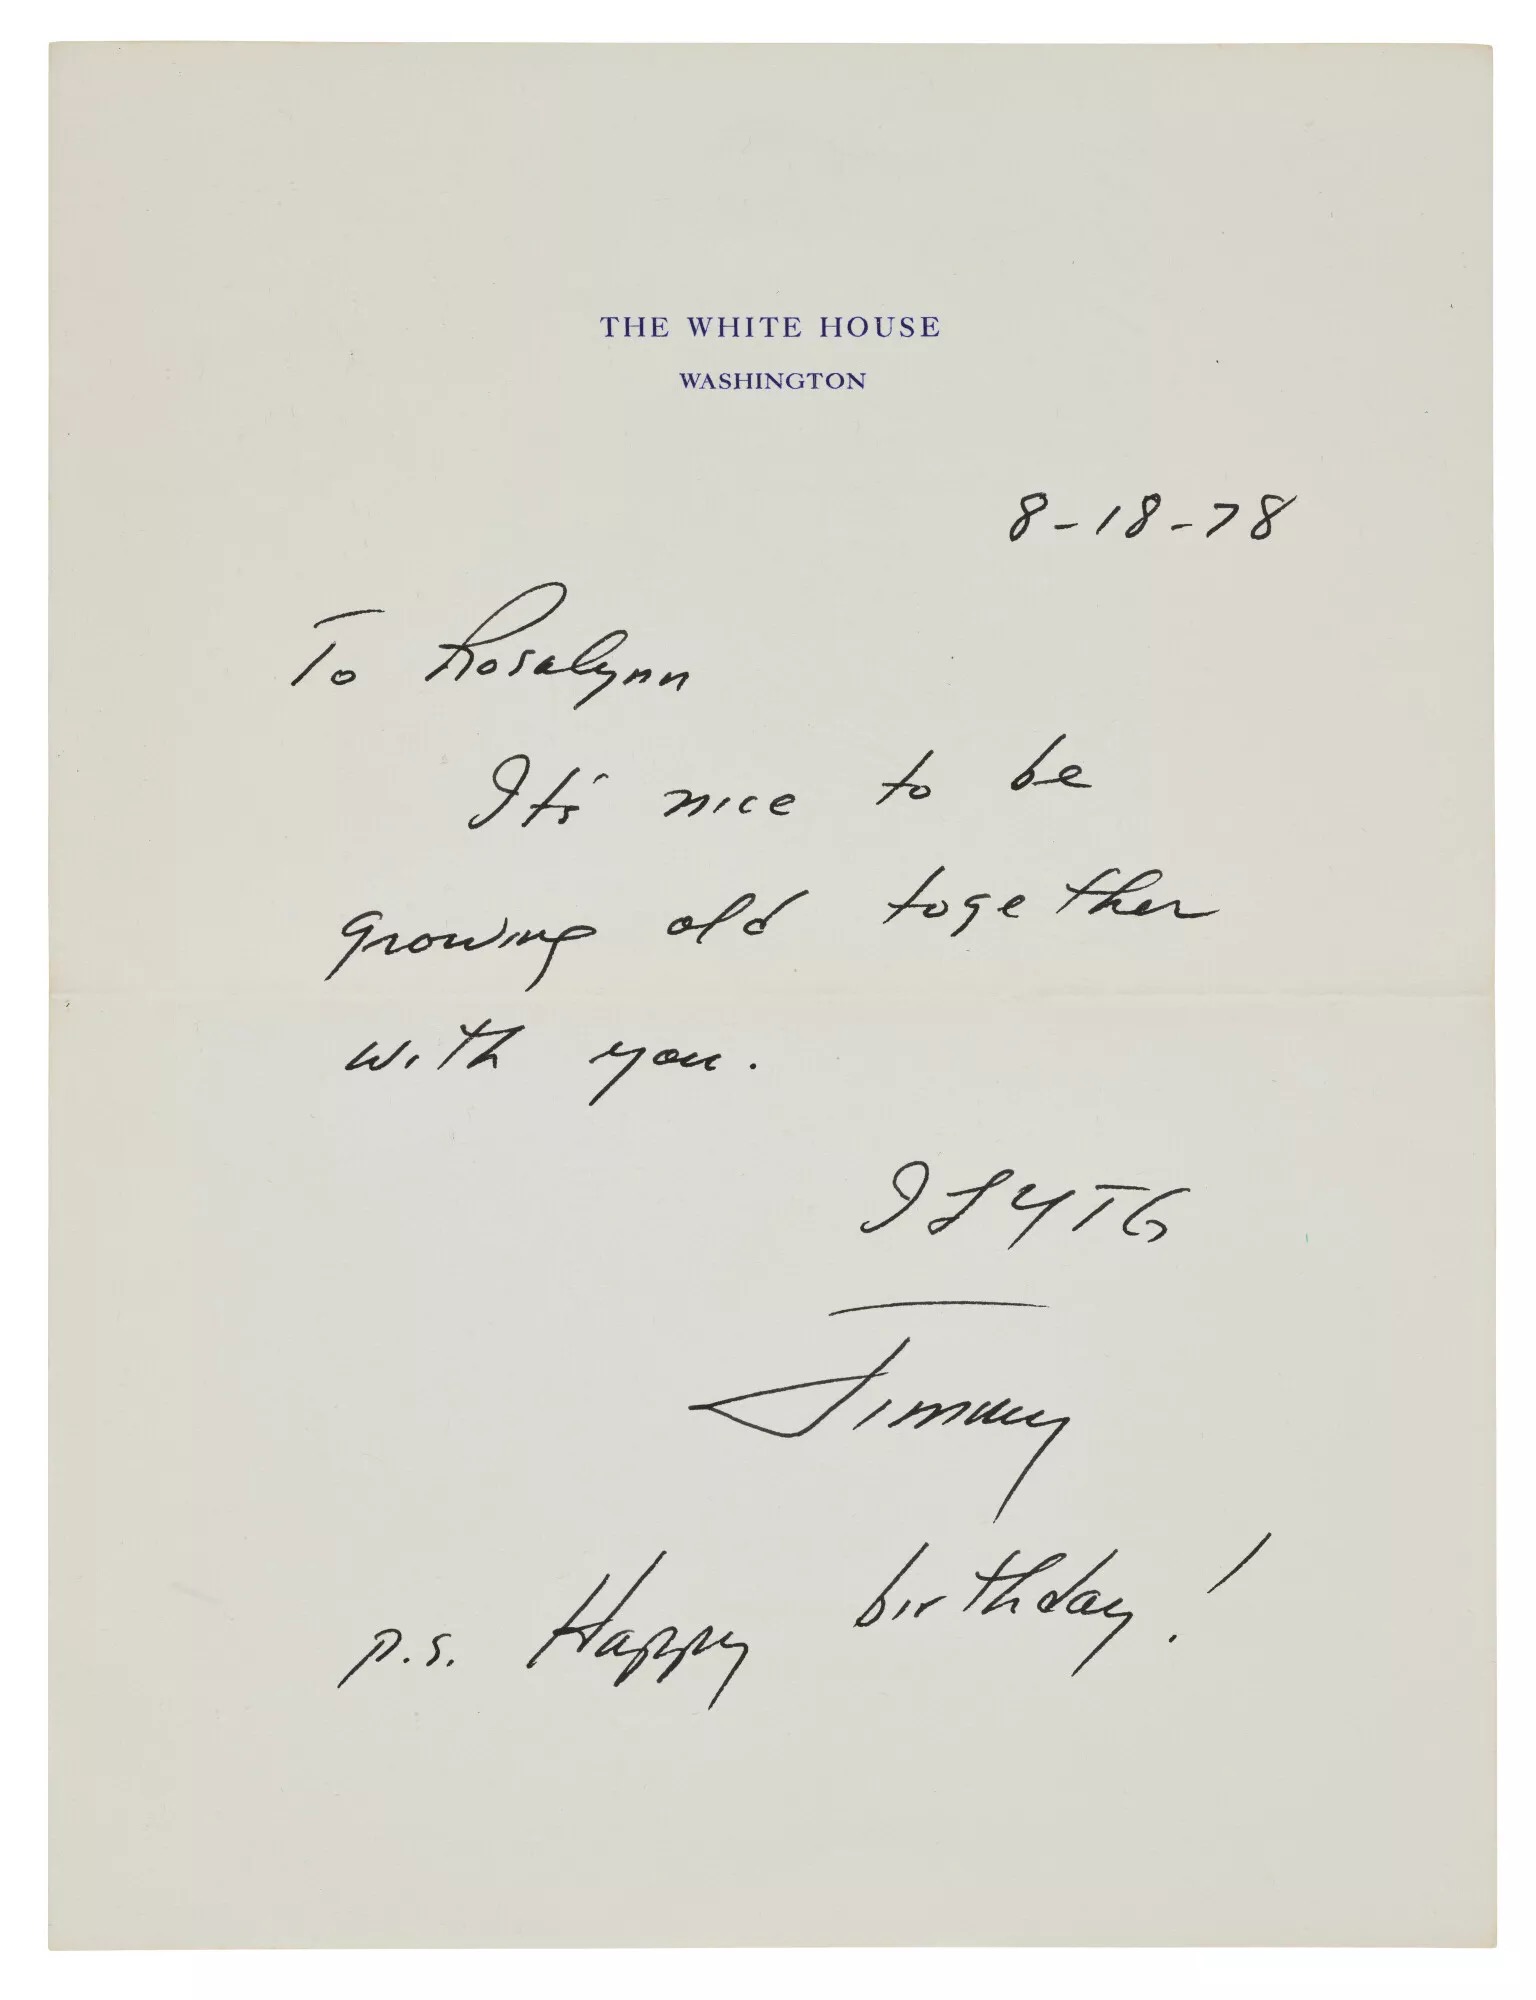 THE WHITE HOUSE
WASHINGTON
8-18-78
To Rosalynn
It's nice to be
growing old together
with you.
ILYTG
Jimmy
p.s. Happy birthday!